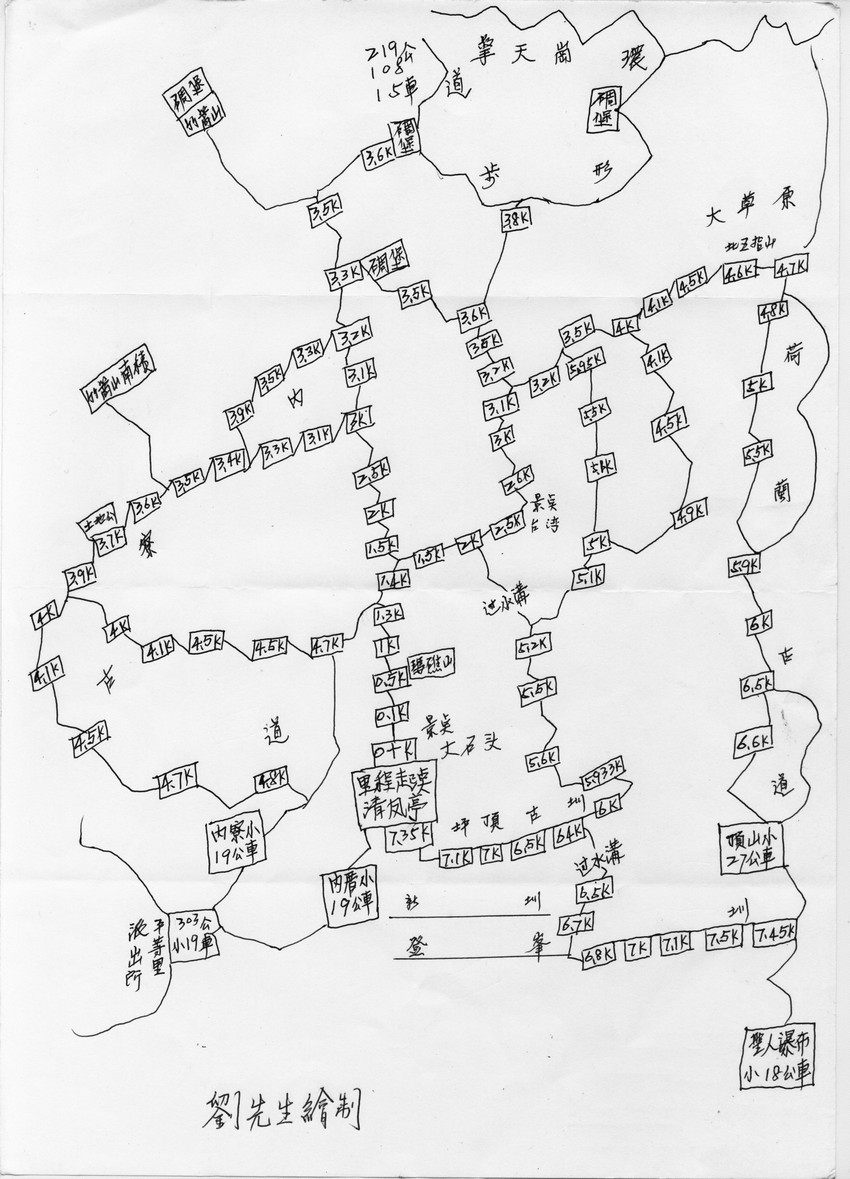 219公
108
15車
擎天崗環
道
碉堡
竹篙山
碉堡
碉堡
3.6K
步
形
3.5K
3.8K
大草原
北五指山
3.3K
碉堡
3.5K
4.1K
4.5K
4.6K
4.7K
3.6K
4.8K
3.2K
3.3K
3.5K
3.9K
3.5K
3.5K
4K
荷
竹篙山南稜
3.1K
3.2K
3.2K
5.95K
4.1K
5K
內
3K
3.1K
3.3K
3.4K
3.5K
3.6K
3.1K
3K
5.5K
4.5K
5.5K
2.5K
2.6K
5.4K
蘭
土地公
3.7K
寮
2K
景点
台湾
2.5K
4.9K
1.5K
1.5K
2K
5K
3.9K
1.4K
5.1K
5.9K
4K
4K
1.3K
过水溝
6K
4.1K
4.5K
4.5K
4.7K
1K
5.2K
古
4.1K
古
0.5K
瑪礁山
5.5K
6.5K
4.5K
道
0.1K
景点
大石头
6.6K
0+K
5.6K
4.7K
4.8K
里程起点
清风亭
5.933K
道
6K
7.35K
坪頂古圳
7.1K
7K
6.5K
6.4K
內寮小
19公車
頂山小
27公車
过水溝
內厝小
19公車
6.5K
新圳
圳
303公
小19車
平等里
派出所
6.7K
登峯
6.8K
7K
7.1K
7.5K
7.45K
聖人瀑布
小18公車
劉先生繪制